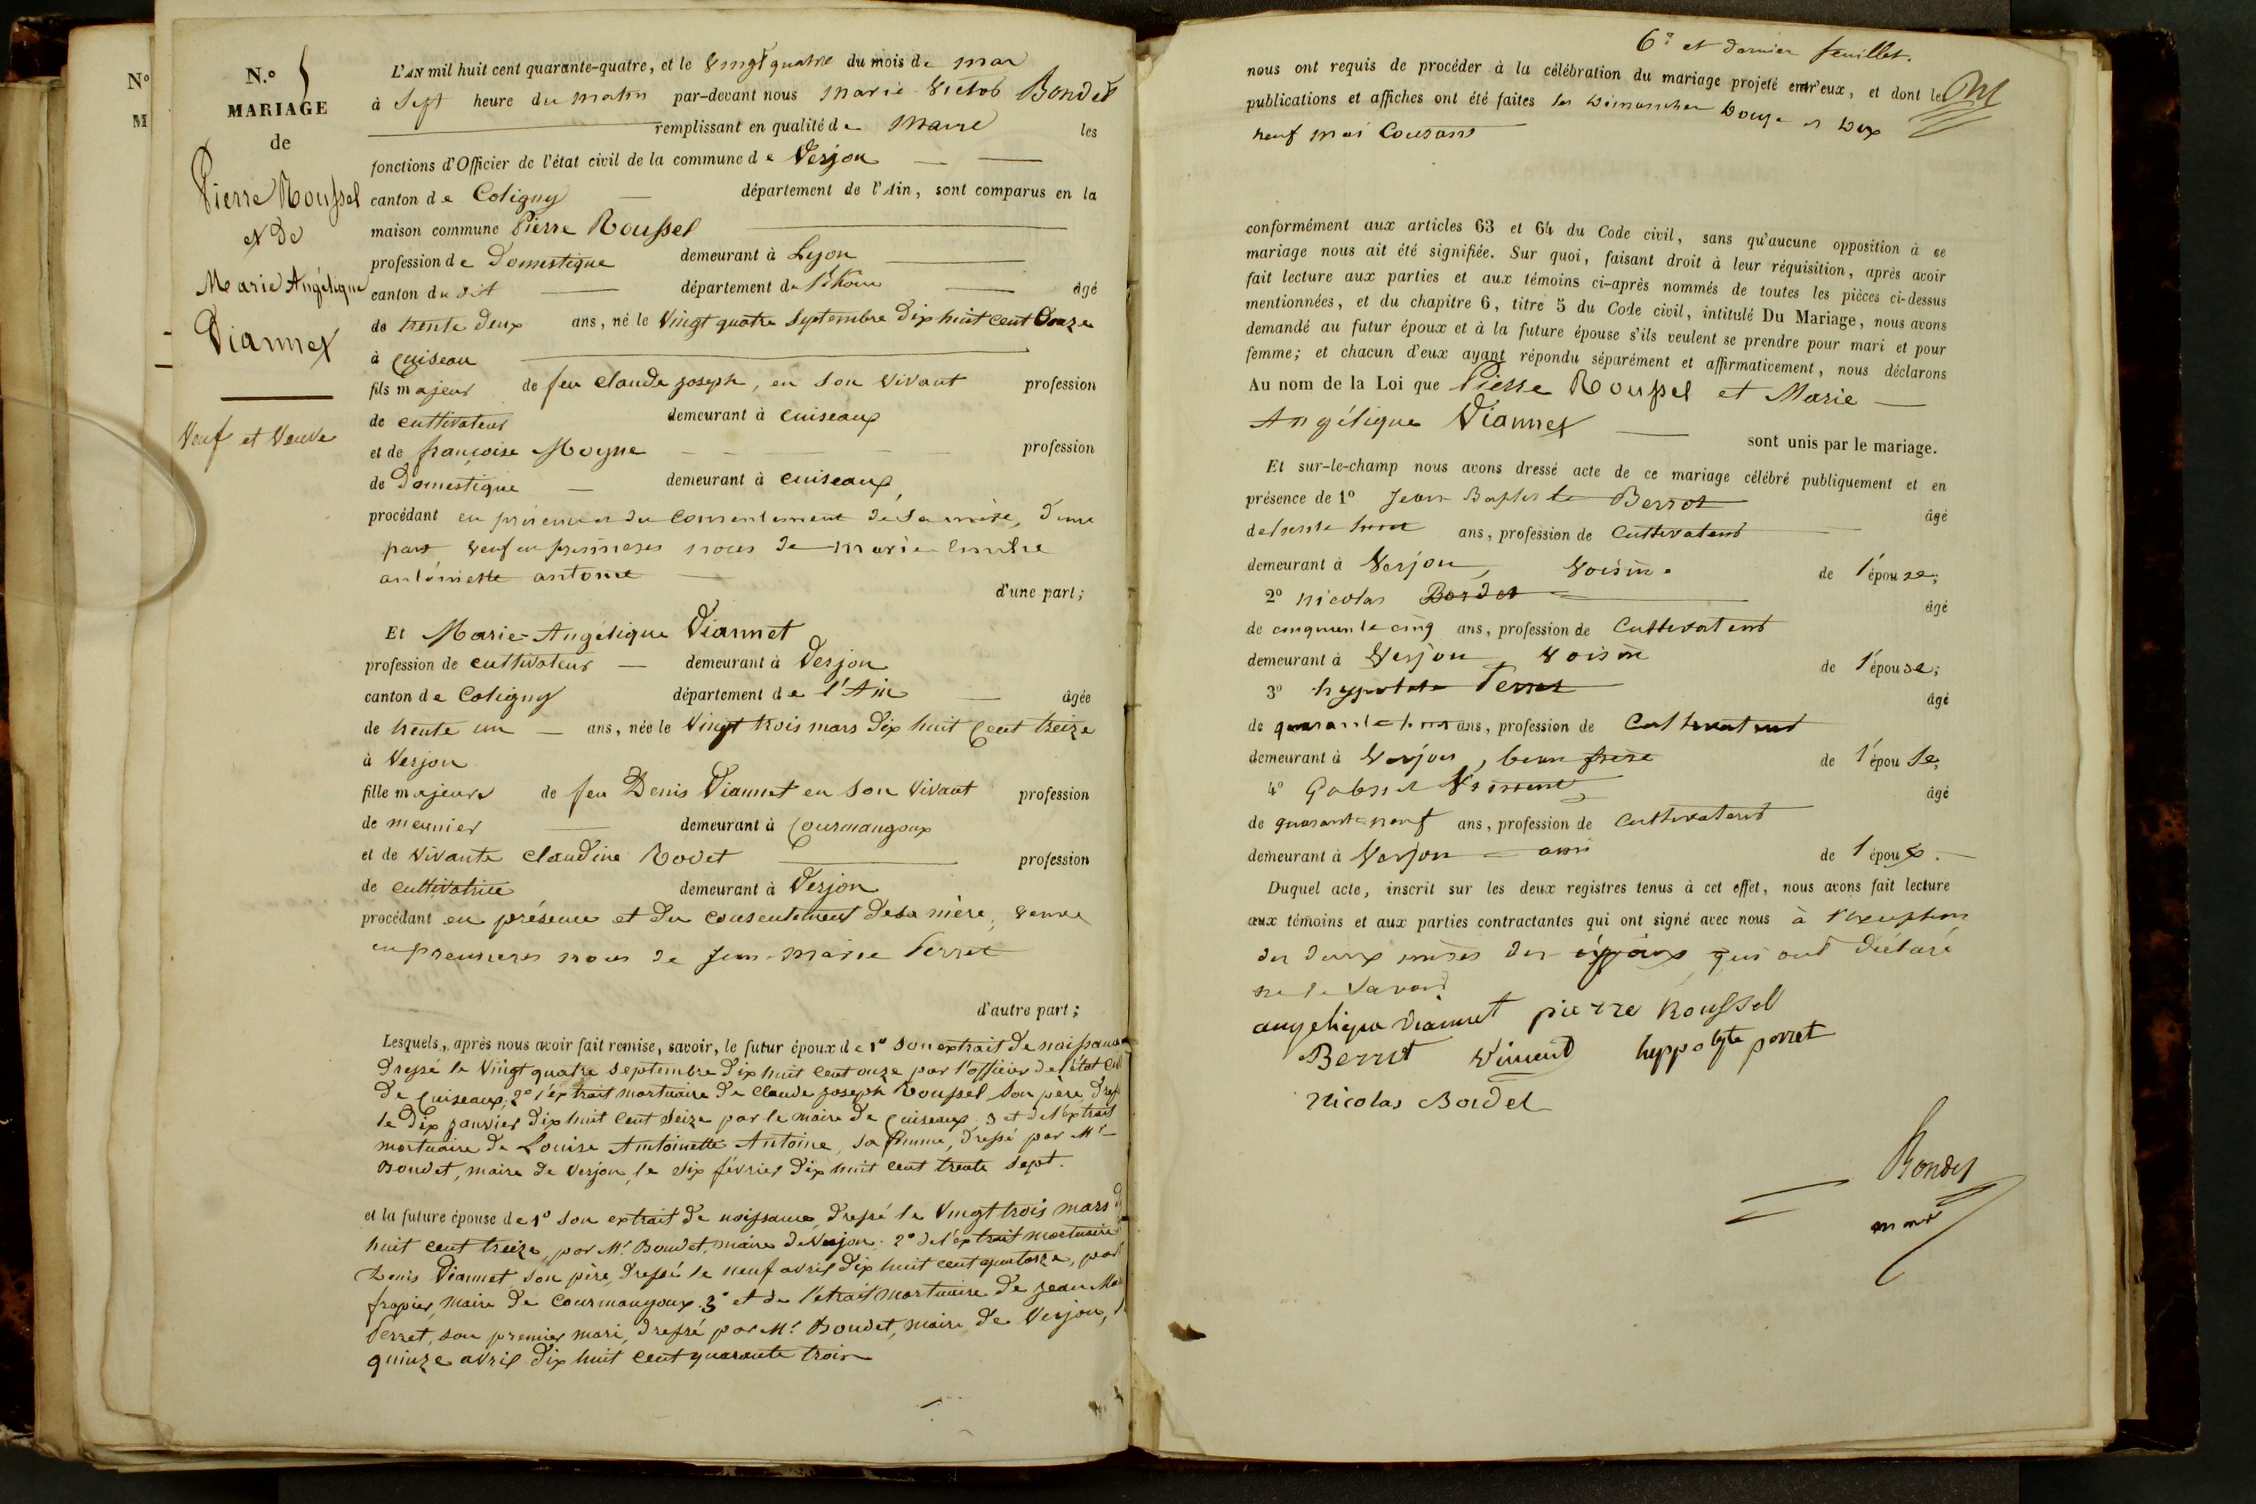 N.º
M
N.º 5
MARIAGE
de
Pierre Roussel
et de
Marie Angélique
Viannet
Veuf et Veuve
L'AN mil huit cent quarante-quatre, et le Vingt quatre du mois de mai
à Sept heure du matin par-devant nous Marie Victor Bondet
remplissant en qualité de Maire les
fonctions d'Officier de l'état civil de la commune de Verjon
canton de Coligny département de l'Ain, sont comparus en la
maison commune Pierre Roussel
profession de Domestique demeurant à Lyon
canton du dit département du Rhône âgé
de trente deux ans, né le Vingt quatre Septembre dix huit cent Onze
à Cuiseau
fils majeur de feu Claude Joseph, en son vivant profession
de cultivateur demeurant à Cuiseaux
et de françoise Moyne profession
de Domestique demeurant à cuiseaux,
procédant en présence et du Consentement de sa mère, d'une
part veuf en premieres noces de Marie
antoinette antoine
d'une part;
Et Marie-Angélique Viannet
profession de cultivateur demeurant à Verjon
canton de Coligny département de l'Ain âgée
de trente un ans, née le Vingt trois mars dix huit Cent treize
à Verjon
fille majeure de feu Denis Viannet en son vivant profession
de meunier demeurant à Courmangoux
et de vivante Claudine Rodet profession
de cultivatrice demeurant à Verjon
procédant en présence et du consentement de sa mère, veuve
en premieres noces de Jean-Marie Perret
d'autre part;
Lesquels, après nous avoir fait remise, savoir, le futur époux de 1º son extrait de naissance
dressé le Vingt quatre Septembre dix huit cent onze par l'officier de l'état civil
de Cuiseaux; 2º l'extrait mortuaire de Claude Joseph Roussel son père, dressé
le dix janvier dix huit cent seize par le maire de Cuiseaux 3 et de l'extrait
mortuaire de Louise Antoinette Antoine, sa femme, dressé par Mr
Bondet, maire de Verjon, le six février dix huit cent trente sept.
et la future épouse de 1º son extrait de naissance, dressé le Vingt trois mars
huit cent treize, par Mr. Bondet, maire de Verjon; 2º de l'extrait mortuaire
Denis Viannet, son père, dressé le neuf avril dix huit cent quatorze, par
frapier, maire de Courmangoux. 3º et de l'etrait mortuaire de Jean Ma
Perret, son premier mari, dressé par Mr. Bondet, maire de Verjon,
quinze avril dix huit cent quarante trois
6e et dernier feuillet.
nous ont requis de procéder à la célébration du mariage projeté entr'eux, et dont les
publications et affiches ont été faites les Dimanches Douze et Dix
neuf mai Courant
conformément aux articles 63 et 64 du Code civil, sans qu'aucune opposition à ce
mariage nous ait été signifiée. Sur quoi, faisant droit à leur réquisition, après avoir
fait lecture aux parties et aux témoins ci-après nommés de toutes les pièces ci-dessus
mentionnées, et du chapitre 6, titre 5 du Code civil, intitulé Du Mariage, nous avons
demandé au futur époux et à la future épouse s'ils veulent se prendre pour mari et pour
femme; et chacun d'eux ayant répondu séparément et affirmativement, nous déclarons
Au nom de la Loi que Pierre Roussel et Marie
Angélique Viannet sont unis par le mariage.
Et sur-le-champ nous avons dressé acte de ce mariage célébré publiquement et en
présence de 1º Jean Baptiste Berrot âgé
de trente huit ans, profession de Cultivateur
demeurant à Verjon, Voisin de l'épouse;
2º nicolas Bordet âgé
de cinquante cinq ans, profession de Cultivateur
demeurant à Verjon Voisin de l'épouse;
3º hyppolite Perret âgé
de quarante trois ans, profession de Cultivateur
demeurant à Verjon, beau frère de l'épouse;
4º Gabriel Vincent âgé
de quarante neuf ans, profession de cultivateur
demeurant à Verjon ami de l'époux.
Duquel acte, inscrit sur les deux registres tenus à cet effet, nous avons fait lecture
aux témoins et aux parties contractantes qui ont signé avec nous à l'exception
des deux mères des époux qui ont déclaré
ne le Savoir
angelique viannet pierre Roussel
Berrot Vincent hyppolyte perret
Nicolas Bordel
Bondet
maire